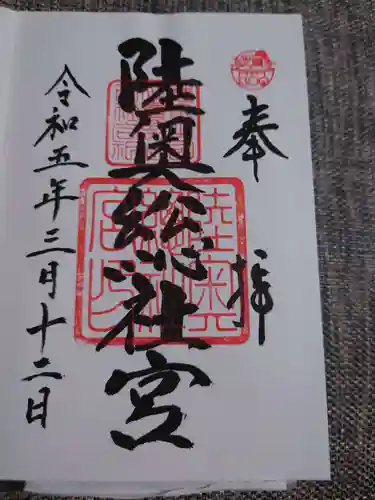 奉拝
陸奥総社宮
令和五年三月十二日